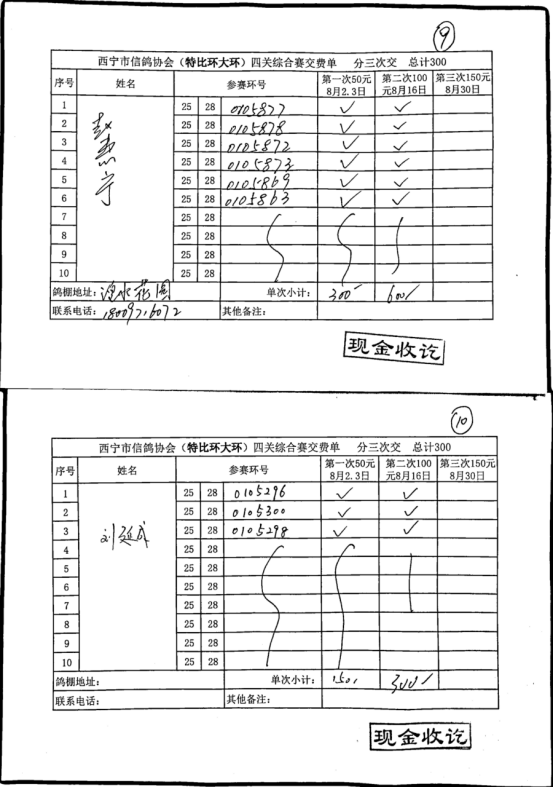 ⑨
西宁市信鸽协会（特比环大环）四关综合赛交费单 分三次交 总计300
序号 姓名 参赛环号 第一次50元8月2.3日 第二次100元8月16日 第三次150元8月30日
赵惠宁
1 25 28 0105877 ✓ ✓
2 25 28 0105878 ✓ ✓
3 25 28 0105872 ✓ ✓
4 25 28 0105873 ✓ ✓
5 25 28 0105869 ✓ ✓
6 25 28 0105863 ✓ ✓
7 25 28
8 25 28
9 25 28
10 25 28
鸽棚地址：湟水花园 单次小计： 300 600
联系电话：18009716072 其他备注：
现金收讫
⑩
西宁市信鸽协会（特比环大环）四关综合赛交费单 分三次交 总计300
序号 姓名 参赛环号 第一次50元8月2.3日 第二次100元8月16日 第三次150元8月30日
1 25 28 0105296 ✓ ✓
2 25 28 0105300 ✓ ✓
3 刘延成 25 28 0105298 ✓ ✓
4 25 28
5 25 28
6 25 28
7 25 28
8 25 28
9 25 28
10 25 28
鸽棚地址： 单次小计： 150 300
联系电话： 其他备注：
现金收讫